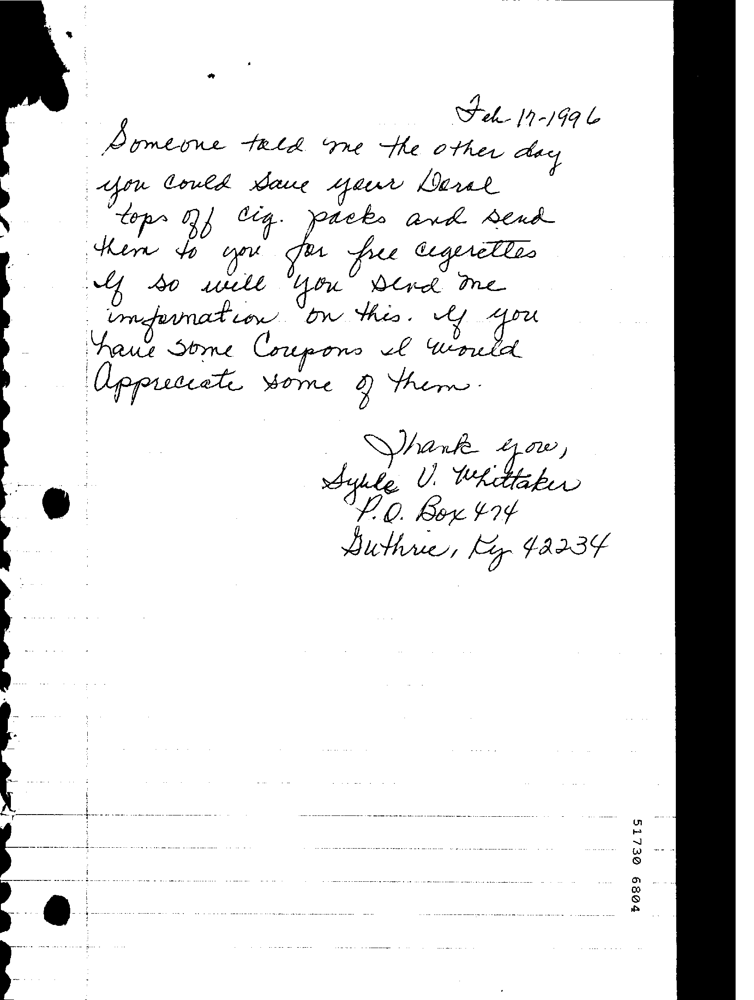 Feb-17-1996
Someone told me the other day
you could save your Doral
tops off cig. packs and send
them to you for free cigerettes
If so will you send me
information on this. If you
have some Coupons I would
Appreciate some of them.
Thank you,
V. Whittaker
P.O. Box 474
Guthrie, Ky 42234
51730 6804